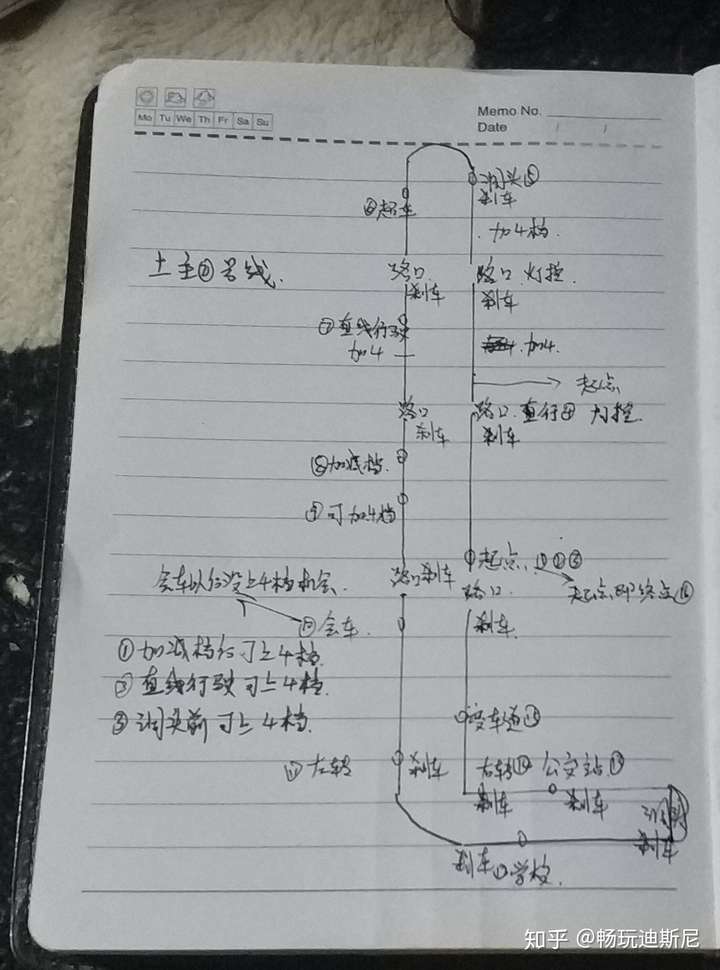 Memo No.
Mo Tu We Th Fr Sa Su
Date / /
调头⑤
刹车
⑥超车
加4档.
土主②号线.
路口.
刹车
路口.灯控.
刹车
⑦直线行驶
加4
加4.
起点
路口
刹车
路口.直行④ 灯控.
刹车
⑧加减档.
⑨可加4档
路口刹车
起点.①②③
起点即终点⑯
会车以后没上4档机会.
路口.
刹车.
⑩会车.
①加减档后可上4档.
②直线行驶可上4档.
③调头前可上4档.
变车道⑮
⑪左转
刹车
右转⑭
刹车
公交站⑬
刹车
调头
刹车
刹车
学校.
知乎 @畅玩迪斯尼